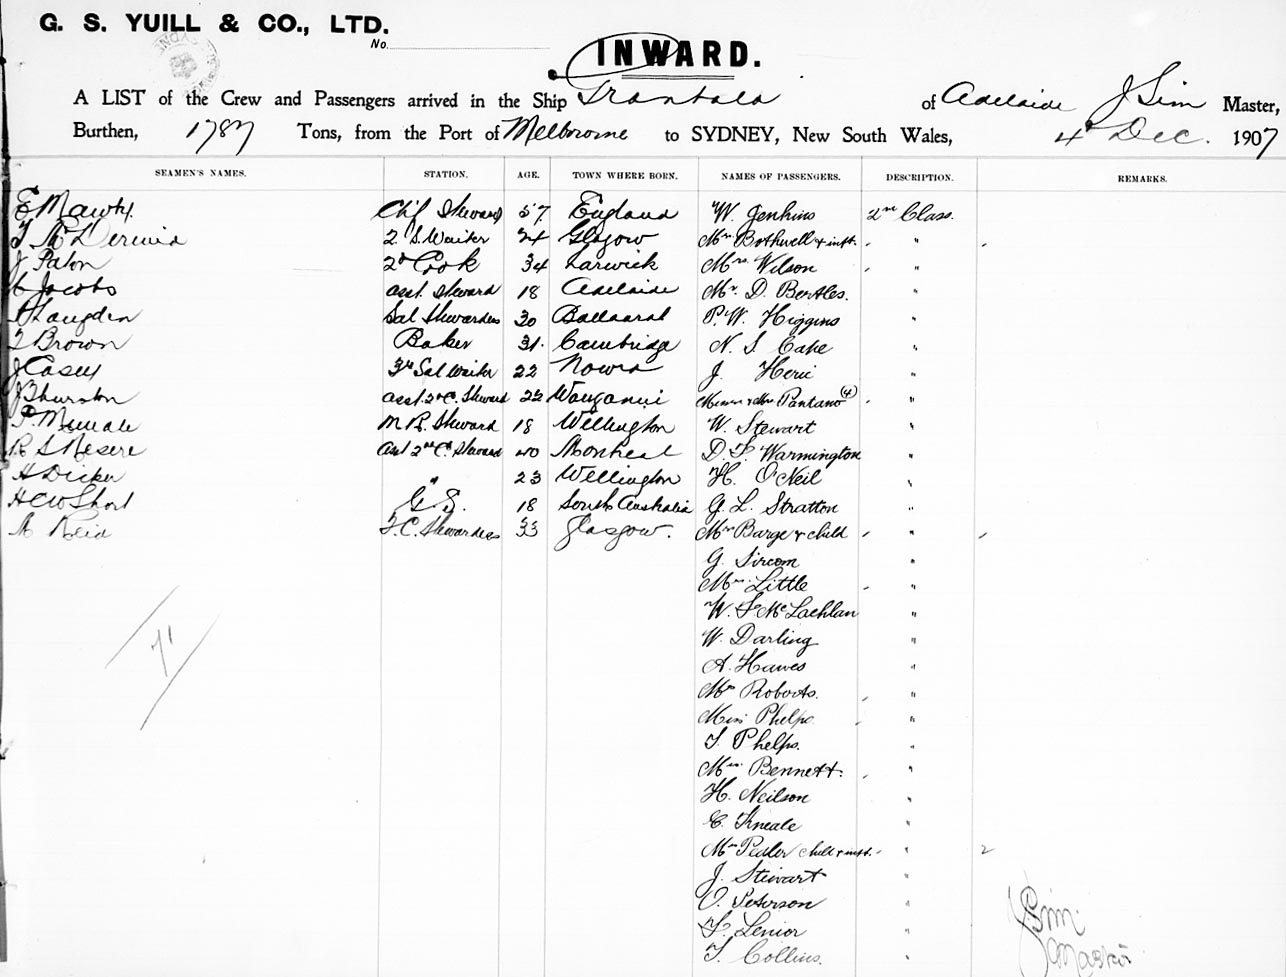 G. S. YUILL & CO., LTD.
No.
INWARD.
A LIST of the Crew and Passengers arrived in the Ship Grantala of Adelaide J Sim Master,
Burthen, 1787 Tons, from the Port of Melbourne to SYDNEY, New South Wales, 4th Dec. 1907
SEAMEN'S NAMES. STATION. AGE. TOWN WHERE BORN. NAMES OF PASSENGERS. DESCRIPTION. REMARKS.
E Chf Steward 57 England W. Jenkins 2nd Class.
T McDermid 2. S. Waiter 24 Glasgow Mrs Bothwell & inft. "
J Paton 2d Cook 34 Larwick Mrs. Wilson "
Jacobs asst. steward 18 Adelaide Mr. D. Beatles. "
Langden Sal Stewardess 30 Ballaarat P. W. Higgins "
T Brown Baker 31. Cambridge N. S. Cake "
J Casey 3rd Sal Waiter 22 Nowra J. "
J Thurston asst. 2nd C. Steward 22 Wanganui & Mrs Pantano (4) "
M. R. Steward 18 Wellington W. Stewart "
R S Mesere asst 2nd C. Steward 40 Montreal D. F. Warmington "
H Dicker " 23 Wellington H. O'Neil "
H C W Short G. S. 18 South Australia G. L. Stratton "
Reid F. C. Stewardess 33 Glasgow. Mrs Barge & child "
G. Sircom "
Mrs. Little "
W. F. McLachlan "
W. Darling "
A. Hawes "
Mrs Roberts. "
Miss Phelps. "
T. Phelps. "
71
Mrs. Bennett. "
H. Neilson "
C. Kneale "
Mrs Pedler child & inft. " 2
J. Stewart "
O. Peterson "
F. Lenior "
T. Collins. "
J. Sim
Master